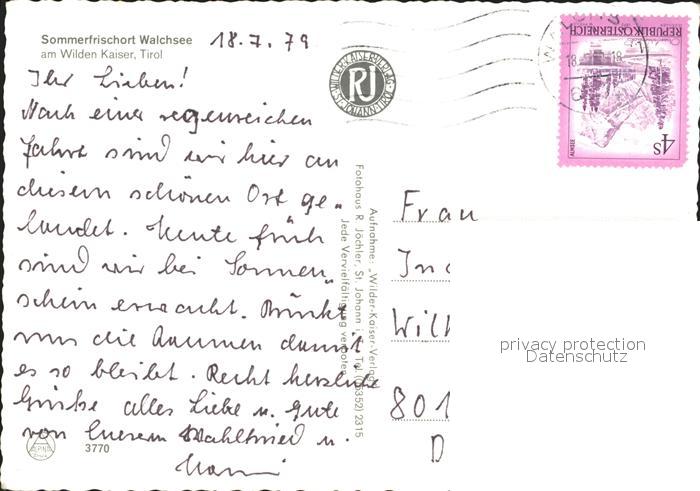 Sommerfrischort Walchsee
am Wilden Kaiser, Tirol
18.7.79
Ihr Lieben!
Nach einer regenreichen
Fahrt sind wir hier an
diesem schönen Ort ge-
landet. Heute früh
sind wir bei Sonnen-
schein erwacht. Drückt
uns die Daumen damit
es so bleibt. Recht herzliche
Grüße alles Liebe u. Gute
von Eurem Wahlfried u.
3770
RJ
Aufnahme: „Wilder-Kaiser-Verlag"
Fotohaus R. Jöchler, St. Johann i. Tel (05352) 2315
Jede Vervielfältigung verboten
REPUBLIK ÖSTERREICH
ALMSEE
4s
Frau
In
Wil
801
D
privacy protection
Datenschutz